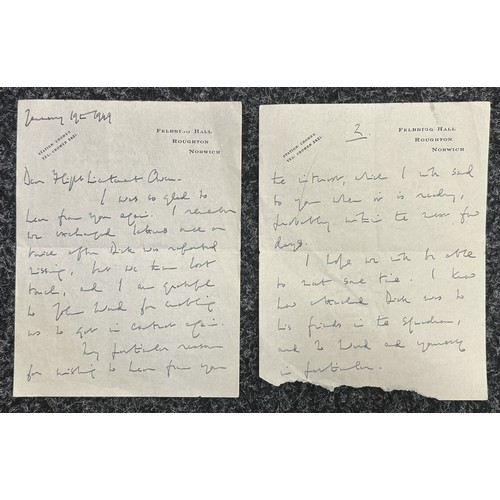 January 19th 1949
STATION CROMER
TEL. CROMER
FELBRIGG HALL
ROUGHTON
NORWICH
Dear Flight Lieutenant Owen
I was so glad to
hear from you again. I remember
we exchanged letters once or
twice after Dick was reported
missing, but we then lost
touch, and I am grateful
to John Ward for enabling
us to get in contact again.
My particular reason
for wishing to hear from you
2.
STATION CROMER
TEL. CROMER
FELBRIGG HALL
ROUGHTON
NORWICH
the interest, which I will send
to you when it is ready,
probably within the next few
days.
I hope we will be able
to meet some time. I know
how attached Dick was to
his friends in the Squadron,
and to Ward and yourself
in particular.